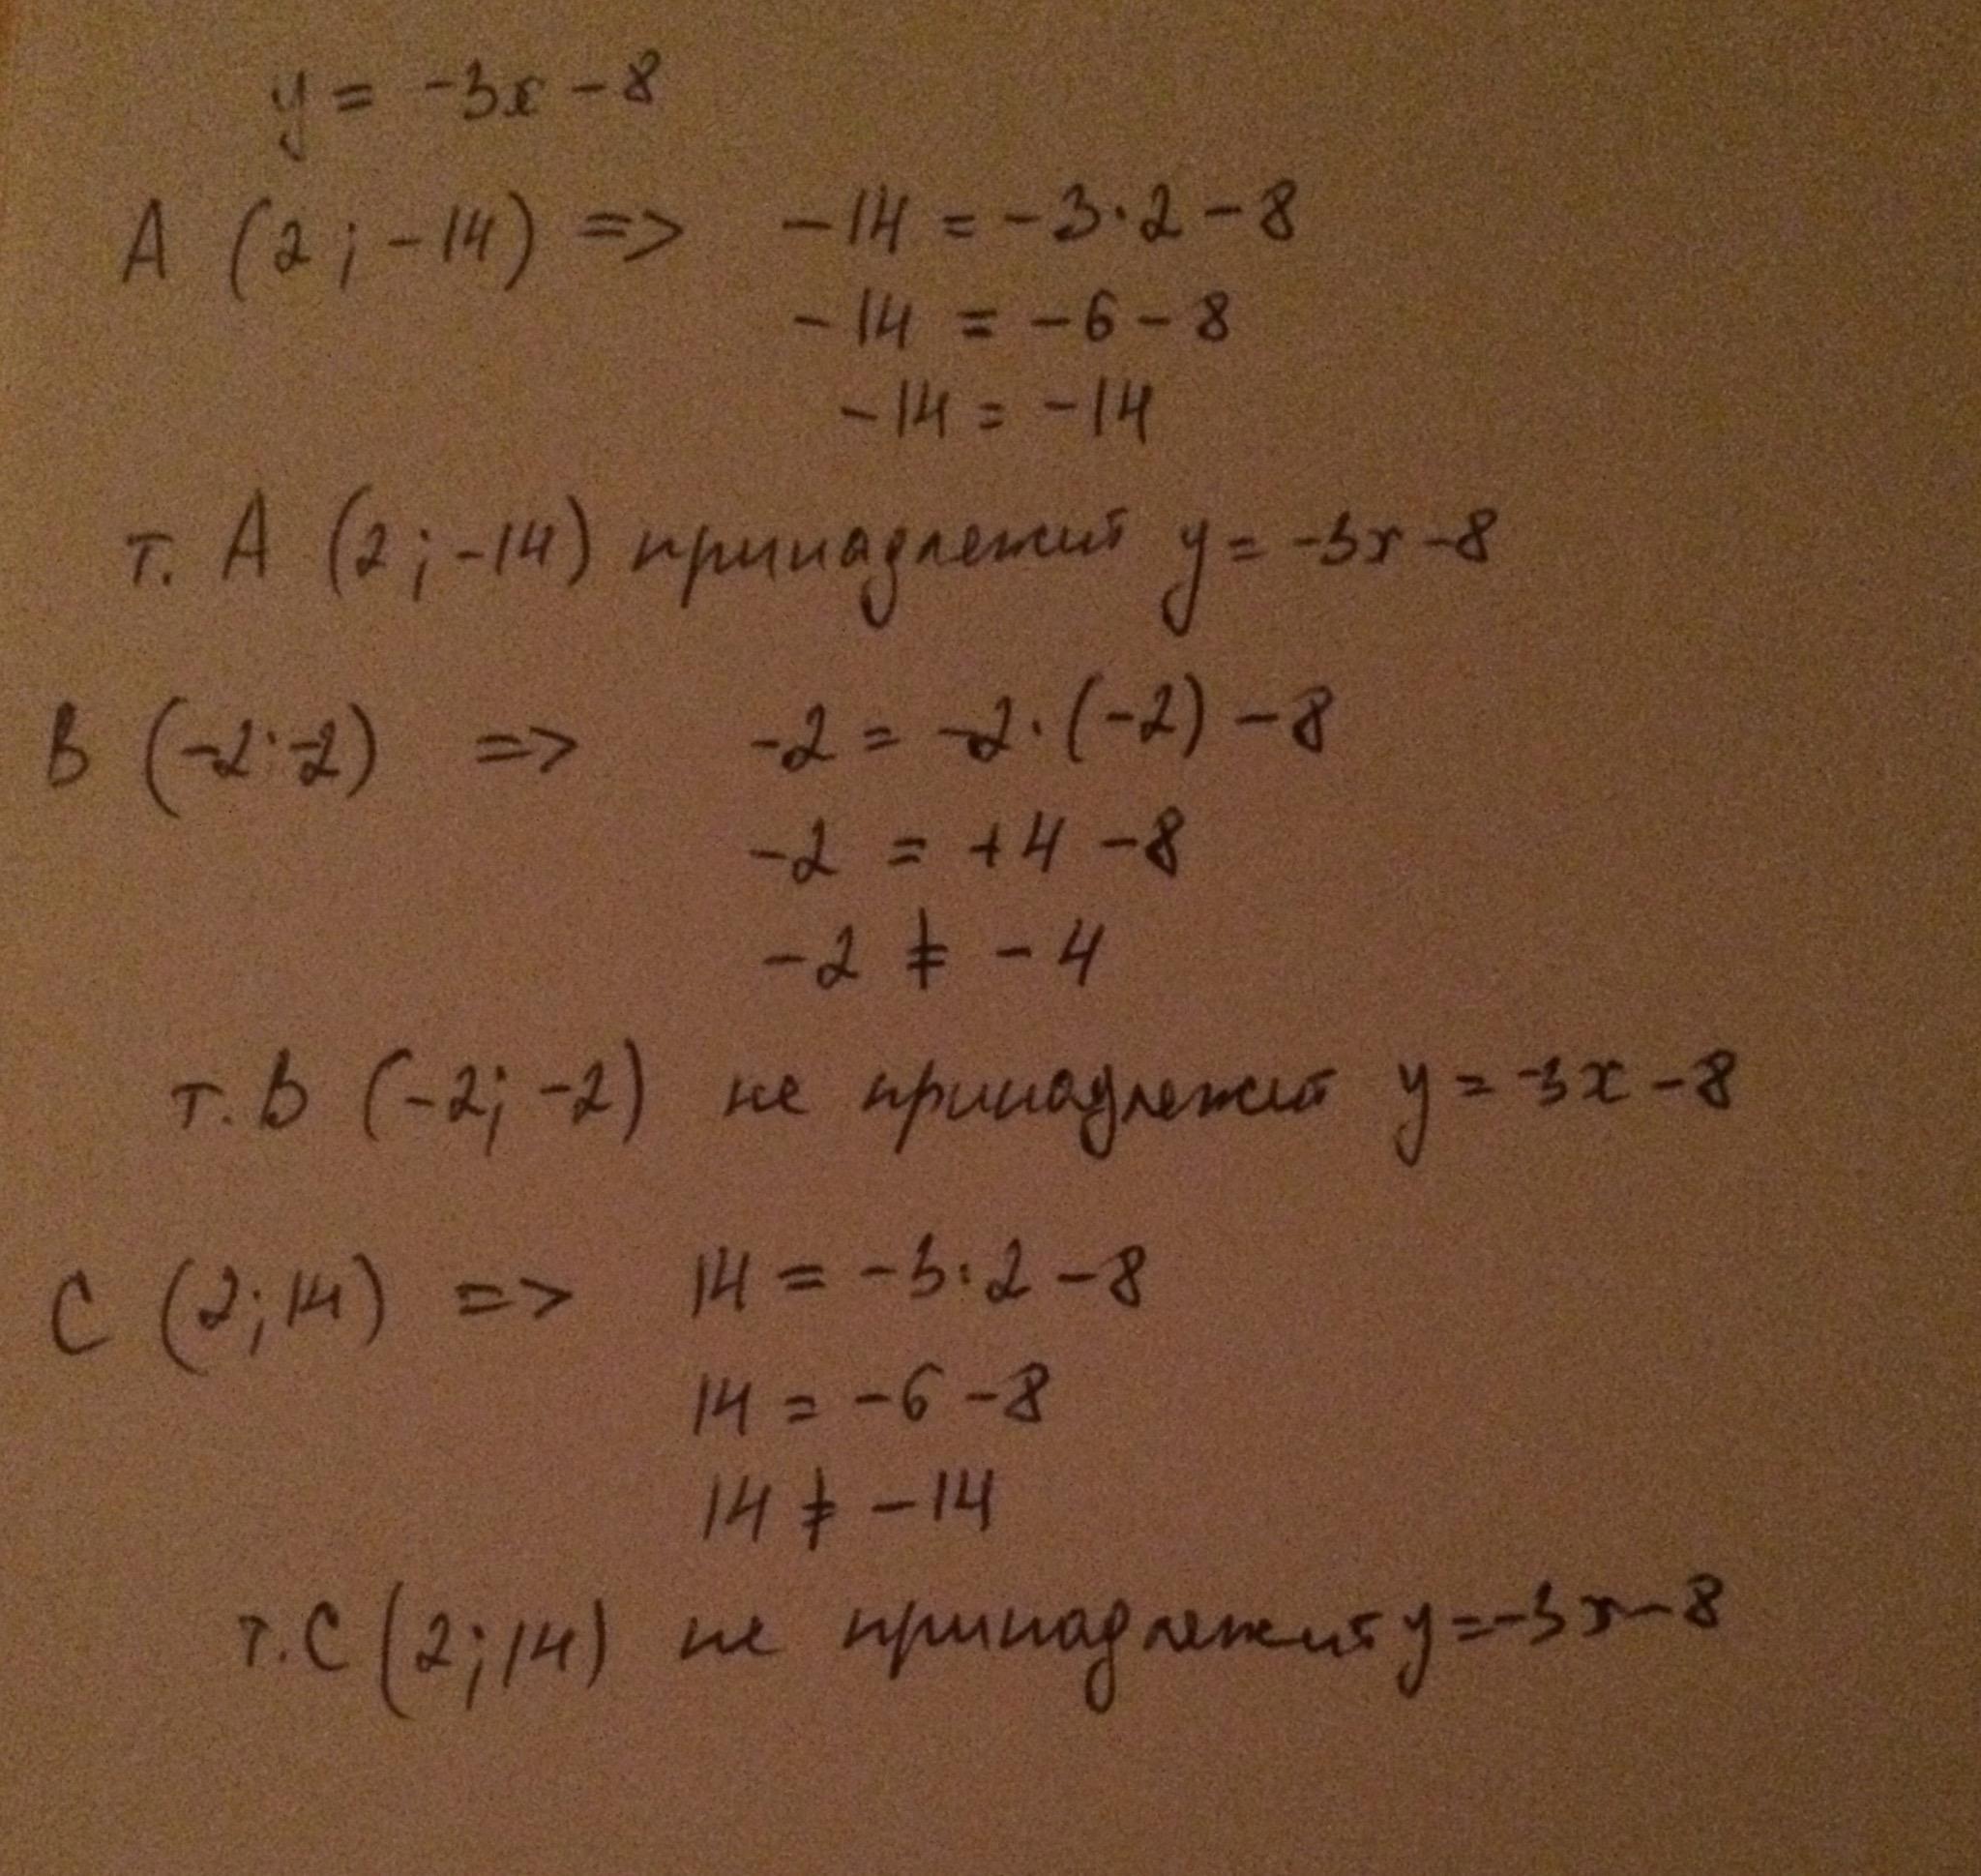 y = -3x - 8
A (2; -14) => -14 = -3·2 - 8
-14 = -6 - 8
-14 = -14
т. A (2; -14) принадлежит y = -3x - 8
B (-2; -2) => -2 = -2·(-2) - 8
-2 = +4 - 8
-2 ≠ -4
т. B (-2; -2) не принадлежит y = -3x - 8
C (2; 14) => 14 = -3·2 - 8
14 = -6 - 8
14 ≠ -14
т. C (2; 14) не принадлежит y = -3x - 8